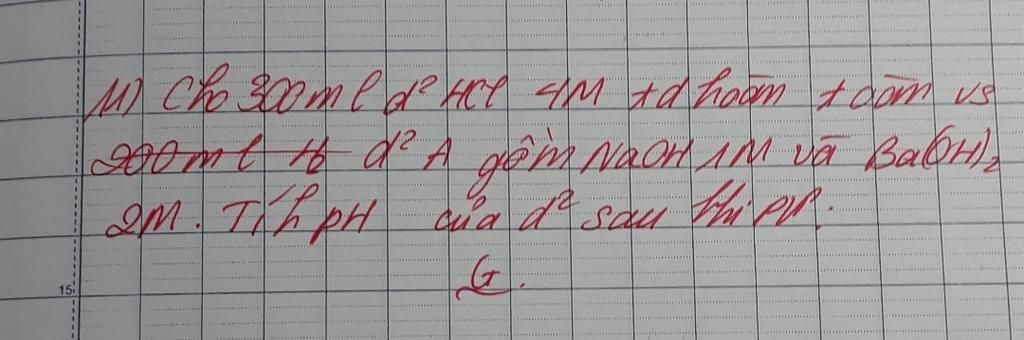 11) Cho 300ml d² HCl 4M td hoàn toàn vs
200ml d² A gồm NaOH 1M và Ba(OH)₂
2M. Tíh pH của d² sau khi pư.
G.
15